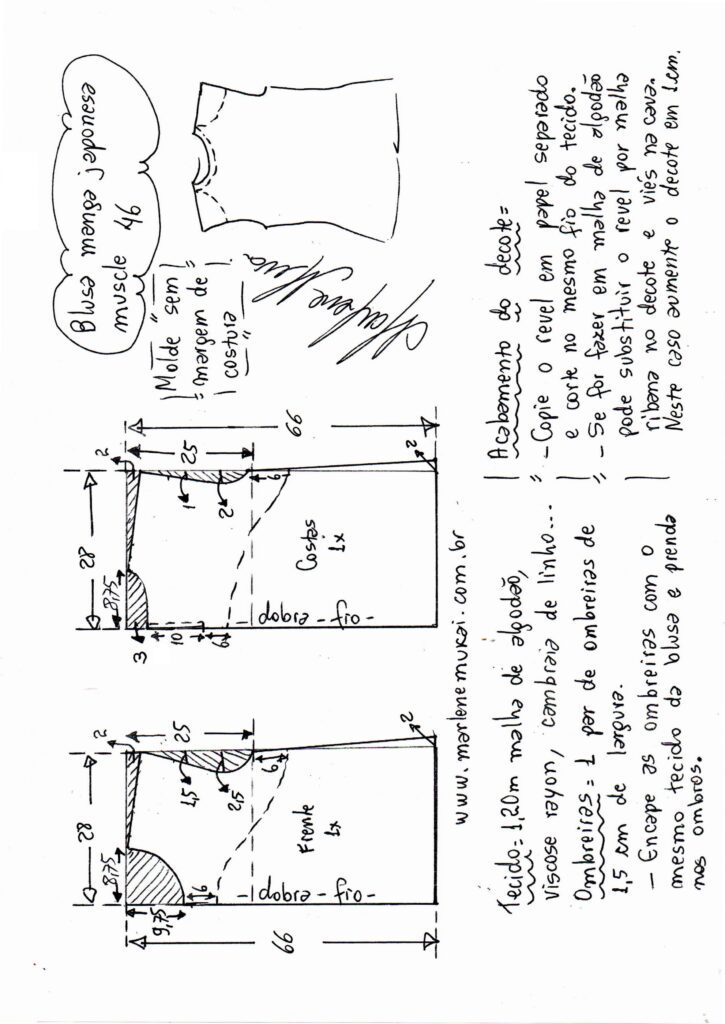 Blusa manga japonesa
muscle 46
"Molde sem
margem de
costura"
Marlene Mukai
28
8,75
9,75
2
25
1,5
2,5
6
6
66
2
Frente
1x
dobra - fio -
28
8,75
3
10
6
2
25
1
2
6
66
2
Costas
1x
dobra - fio -
www.marlenemukai.com.br
Tecido = 1,20m malha de algodão,
viscose rayon, cambraia de linho...
Ombreiras = 1 par de ombreiras de
1,5 cm de largura.
- Encape as ombreiras com o
mesmo tecido da blusa e prenda
nos ombros.
Acabamento do decote =
- Copie o revel em papel separado
e corte no mesmo fio do tecido.
- Se for fazer em malha de algodão
pode substituir o revel por malha
ribana no decote e viés na cava.
Neste caso aumente o decote em 1cm.